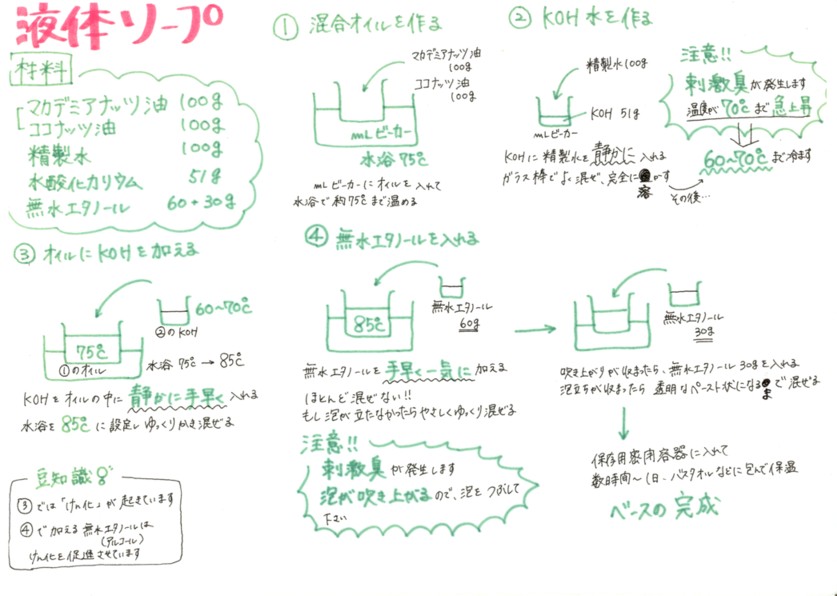 液体ソープ
材料
マカデミアナッツ油 100g
ココナッツ油 100g
精製水 100g
水酸化カリウム 51g
無水エタノール 60+30g
① 混合オイルを作る
マカデミアナッツ油
100g
ココナッツ油
100g
mLビーカー
水浴75℃
mLビーカーにオイルを入れて
水浴で約75℃まで温める
② KOH水を作る
精製水100g
KOH 51g
mLビーカー
KOHに精製水を静かに入れる
ガラス棒でよく混ぜ、完全に溶かす
その後…
注意!!
刺激臭が発生します
温度が70℃まで急上昇
60~70℃まで冷ます
③ オイルにKOHを加える
60~70℃
②のKOH
75℃
①のオイル
水浴 75℃→85℃
KOHをオイルの中に静かに手早く入れる
水浴を85℃に設定しゆっくりかき混ぜる
豆知識
③では「けん化」が起きています
④で加える無水エタノールは
(アルコール)
けん化を促進させています
④ 無水エタノールを入れる
85℃
無水エタノール
60g
無水エタノールを手早く一気に加える
ほとんど混ぜない!!
もし泡が立たなかったらやさしくゆっくり混ぜる
注意!!
刺激臭が発生します
泡が吹き上がるので、泡をつぶして
下さい
無水エタノール
30g
吹き上がりが収まったら、無水エタノール30gを入れる
泡立ちが収まったら透明なペースト状になるまで混ぜる
保存用密閉容器に入れて
数時間~1日、バスタオルなどに包んで保温
ベースの完成